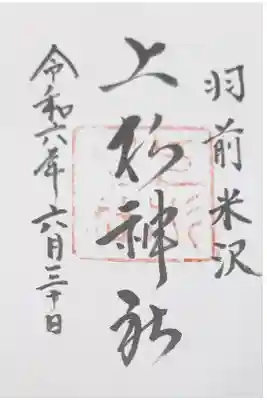 羽前米沢
上杉神社
令和六年六月三十日